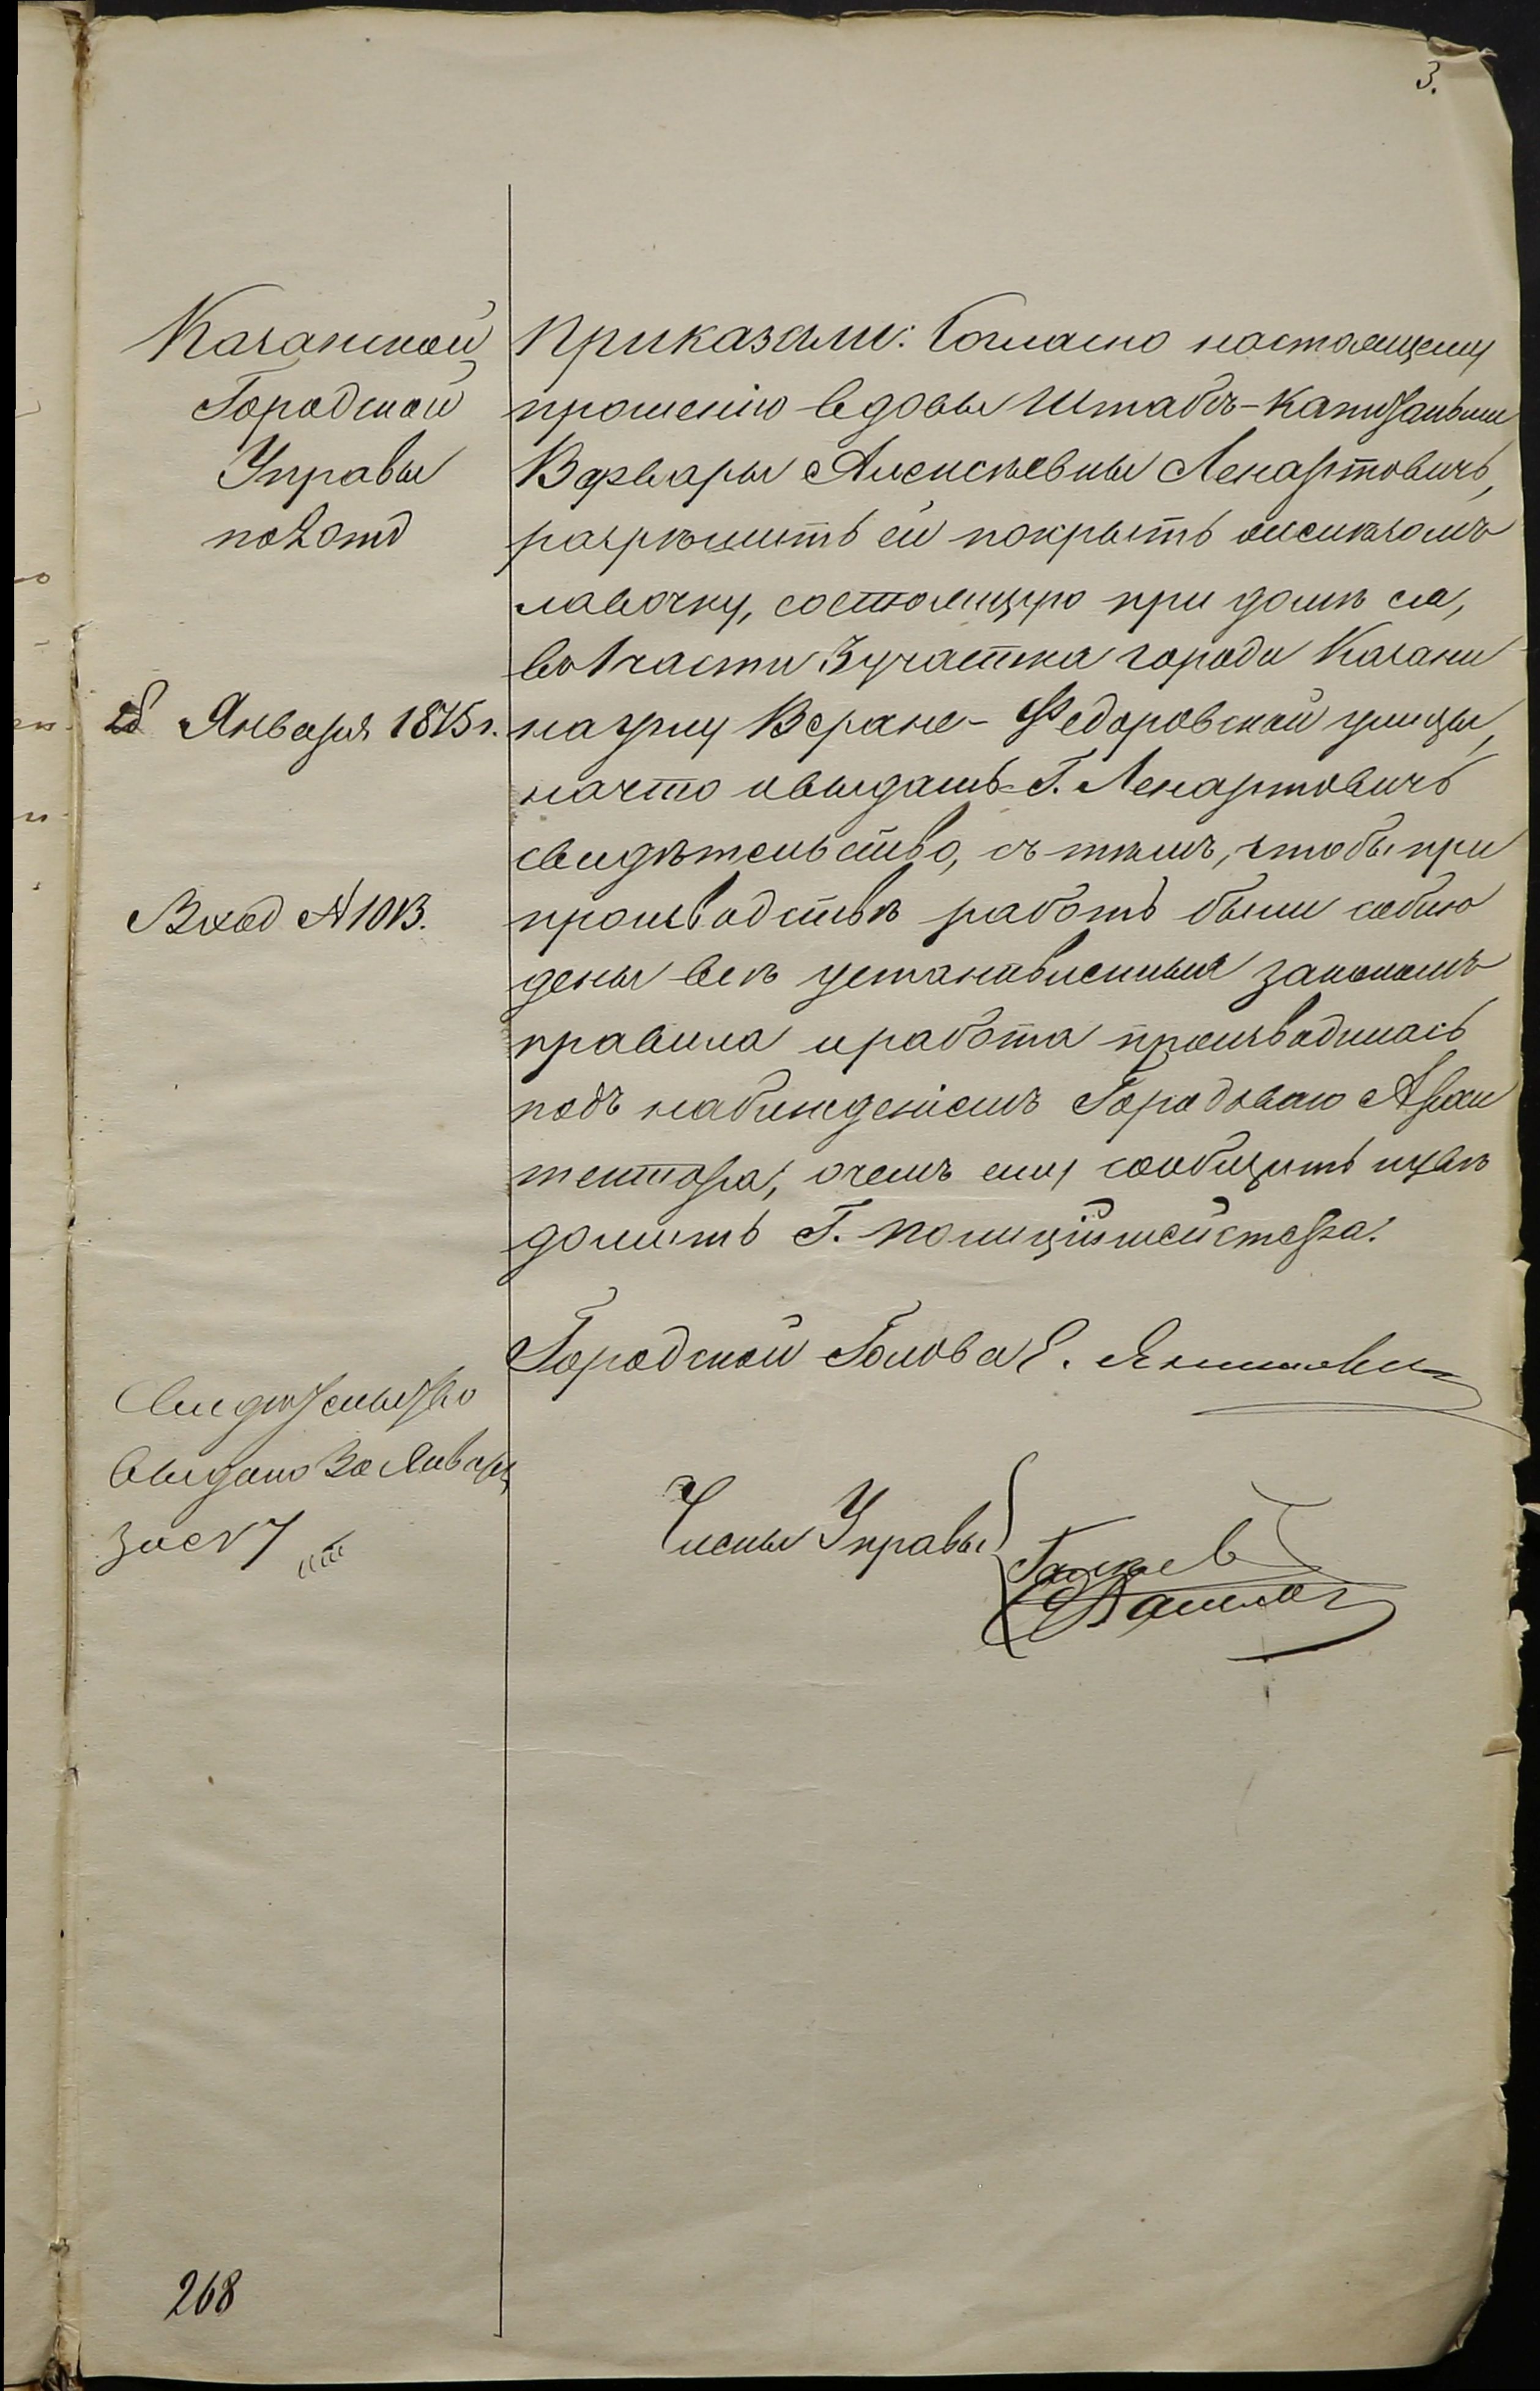 3.
Казанской
Городской
Управы
по 2 отд
28 Января 1875 г.
Вход № 1013.
Свидѣтельство
выдано 30 Января
за № 7
268
Приказали: Согласно настоящему
прошенію вдовы Штабсъ-Капитанши
Варвары Алексѣевны Ленартовичъ,
разрѣшить ей покрыть желѣзомъ
лавочку, состоящую при домѣ ея,
во 1 части 3 участка города Казани
на углу Второ-Федоровской улицы,
на что и выдать Г. Ленартовичъ
свидѣтельство, съ тѣмъ, чтобы при
производствѣ работъ были соблю
дены всѣ установленныя закономъ
правила и работа производилась
подъ наблюденіемъ Городоваго Архи
тектора, о чемъ ему сообщить и увѣ
домить Г. Полиціймейстера.
Городской Голова Э. Янишевскій
Члены Управы